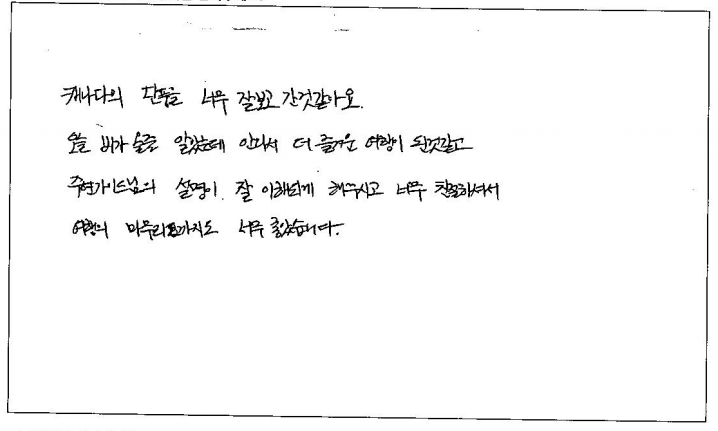 캐나다의 단풍을 너무 잘보고 간것같아요.
오늘 비가 올줄 알았는데 안와서 더 즐거운 여행이 된것같고
주현가이드님의 설명이 잘 이해되게 해주시고 너무 친절하셔서
여행의 마무리까지도 너무 좋았습니다.